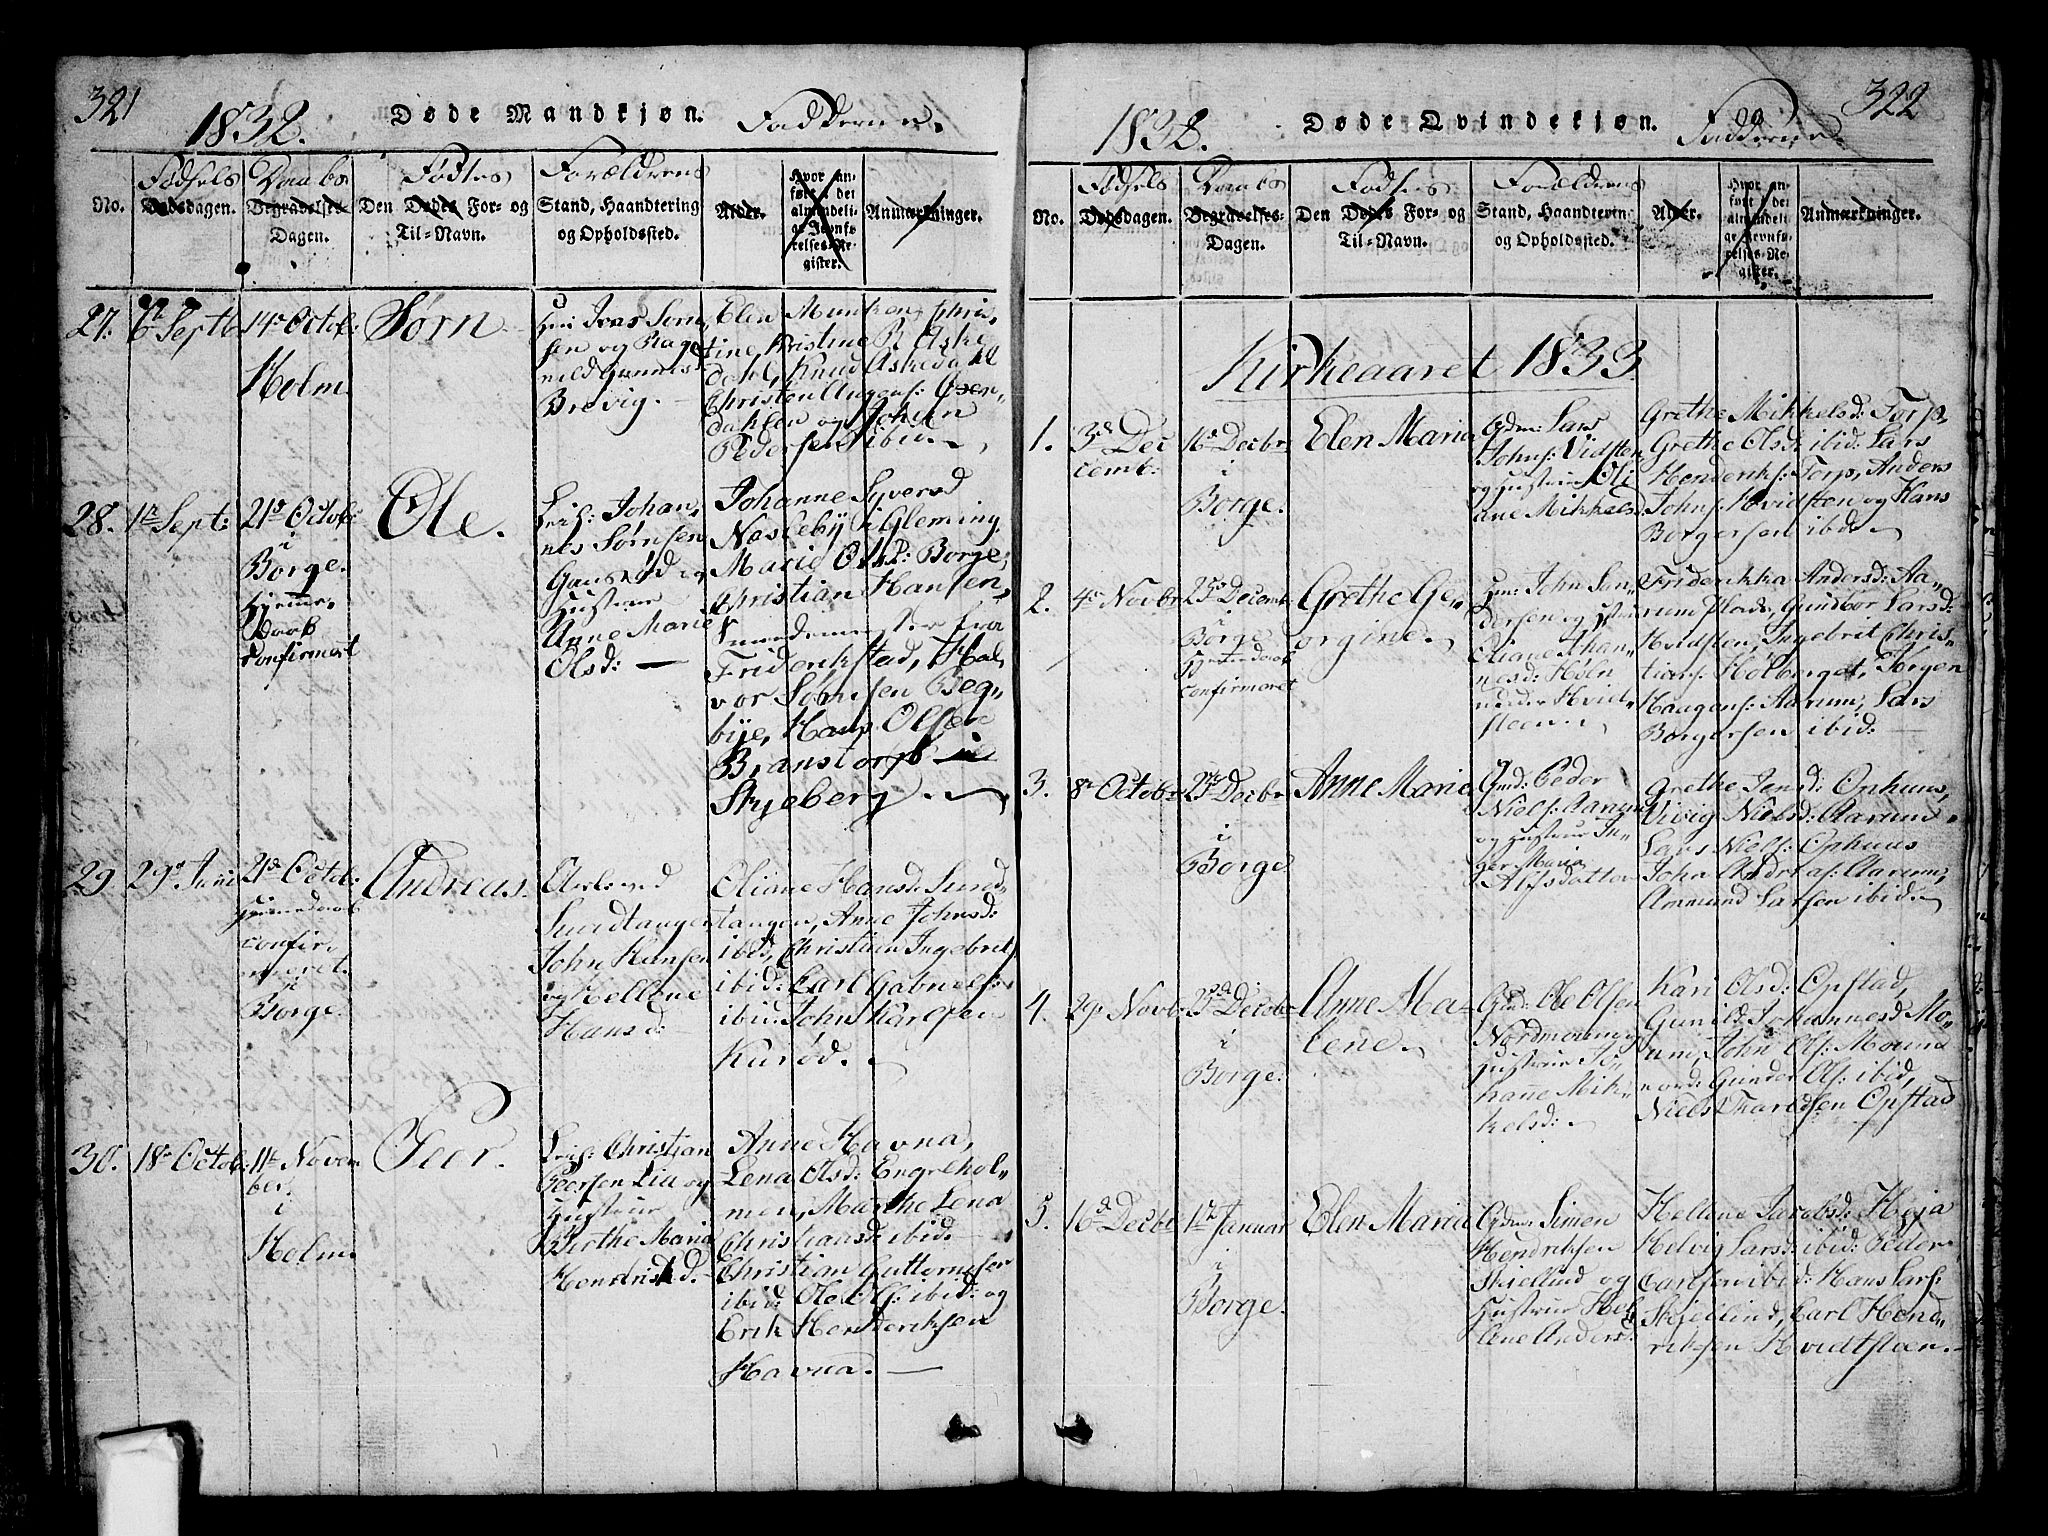 321
1832.
Døde Mandkjøn.
Faddere
No.
Fødsels
Dødsdagen.
Daabs
Begravelses-
Dagen.
Fødtes
Den Dødes For- og
Til-Navn.
Forældrenes
Stand, Haandtering
og Opholdssted.
Alder.
Hvor an-
ført i det
almindeli-
ge Jevnfø-
relses-Re-
gister.
Anmærkninger.
27.
Septb
14de Octob:
Holm
Sørn
Iver Sørn
sen og Rag
nild Gunnis
Brevig.
Elen Munken, Chris,
tine, Kristine R Aske
dahl, Knud Askedahl
Christen
dahlen og Johan
Pedersen ibid.
28.
1te Sept:
21de Octob:
i
Borge.
Hjemme-
daab
confirmert
Ole.
Leil: Johan,
nes Sørnsen
Gansrød og
Hustrue
Anne Marie
Olsd:
Johanne Syversd
Nesleby i Gleming,
Marie Olsd: Borge,
Christian Hansen,
fra
Friderikstad, Hal,
vor Sørnsen Beg,
bye, Hans Olsen
Branstorp i
Skjeberg.
29.
29de Juni
21de Octob:
Hjemmedaab
confir,
meret
i
Borge.
Andreas.
Sundtangen
John Hansen
og Hellene
Hansd:
Oliane Hansd: Sund,
tangen, Anne Johnsd:
ibid, Christian Ingebrit
ibid: Carl Gabriels:
ibid: John Karlsen
Kurød.
30.
18de Octob:
11te Novem
ber.
i
Holm.
Peer.
Leil: Christian
Peersen Lia og
Hustrue
Birthe Maria
Hendriksd.
Anne Havna,
Lena Olsd: Engehol,
men, Marthe Lena
Christiansd: ibid.
Christian Guttormsen
ibid: Ole Ols: ibid: og
Erik Henderiksen
Havna.
322
1832.
Døde Qvindekjøn.
Faddere
No.
Fødsels
Dødsdagen.
Daabs
Begravelses-
Dagen.
Fødtes
Den Dødes For- og
Til-Navn.
Forældrenes
Stand, Haandterin
og Opholdssted.
Alder.
Hvor an-
ført i det
almindeli-
ge Jevnfø-
relses-Re-
gister.
Anmærkninger.
Kirkeaaret 1833
1.
3de De
cemb:
16de Decbr
i
Borge.
Elen Maria
Lars
Johns: Vidsten
og Hustrue Oli
ane Mikkelsd
Grethe Mikkelsd: Torp,
Grethe Olsd: ibid: Lars
Henderiks: Torp, Anders
Johns: Hvidsten og Hans
Borgersen ibid.
2.
4de Novbr
25de Decemb
i
Borge
Hjemmedaab
confirmeret
Grethe Ge,
orgine.
Huus: John
dersen og
Oliane Johan,
nesd:
under Hvid,
steen.
Friderikka Andersd: Aa,
rum Lars:
Hvidsten, Ingebrit Chris,
tians: Holberget, Jørgen
Haagens: Aarum, Lars
Borgersen ibid:
3.
8de Octobr
Decbr
i
Borge
Anne Marie
Gmd: Peder
Niels: Aarum
og Hustrue In,
ger Maria
Alfsdatter
Grethe Jensd: Ophuus,
Nielsd: Aarum
Lars Niels: Ophuus
John Andreas: Aarum,
Ammund Larsen ibid.
4.
29de Novb:
25de Decbr
i
Borge.
Anne Ma,
lene.
Gmd: Ole Olsen
Nordmoum og
Hustrue Jo,
hanne Mik,
kelsd:
Kari Olsd: Opstad,
Gunild Johannesd Mo,
um, John Ols: Moum
nord: Gunder Ols: ibid,
Niels Opstad
5.
16de Decbr
1te Januar
i
Borge.
Elen Maria
Simen
Hendriksen
Skjellind og
Hustrue Hel
lene Anders:
Hellene Jacobsd: Heia
Helvig Larsd: ibid: Peder
Carlsen ibid: Hans Lars:
Skjellind, Carl Hend,
riksen Hvidtsteen.